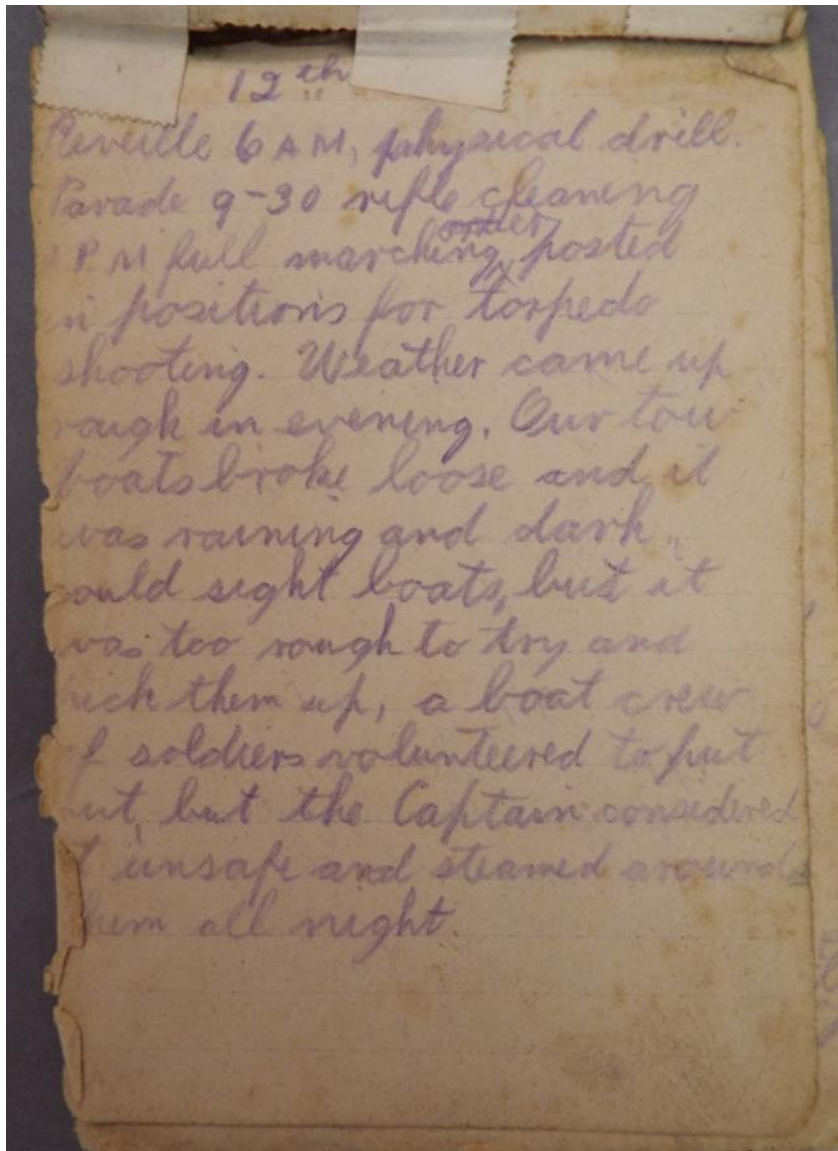 12th
Reveille 6 AM, physical drill.
Parade 9-30 rifle cleaning
PM full marching order posted
in positions for torpedo
shooting. Weather came up
rough in evening. Our tow
boats broke loose and it
was raining and dark,
could sight boats, but it
was too rough to try and
pick them up, a boat crew
of soldiers volunteered to put
out, but the Captain considered
it unsafe and steamed around
them all night.